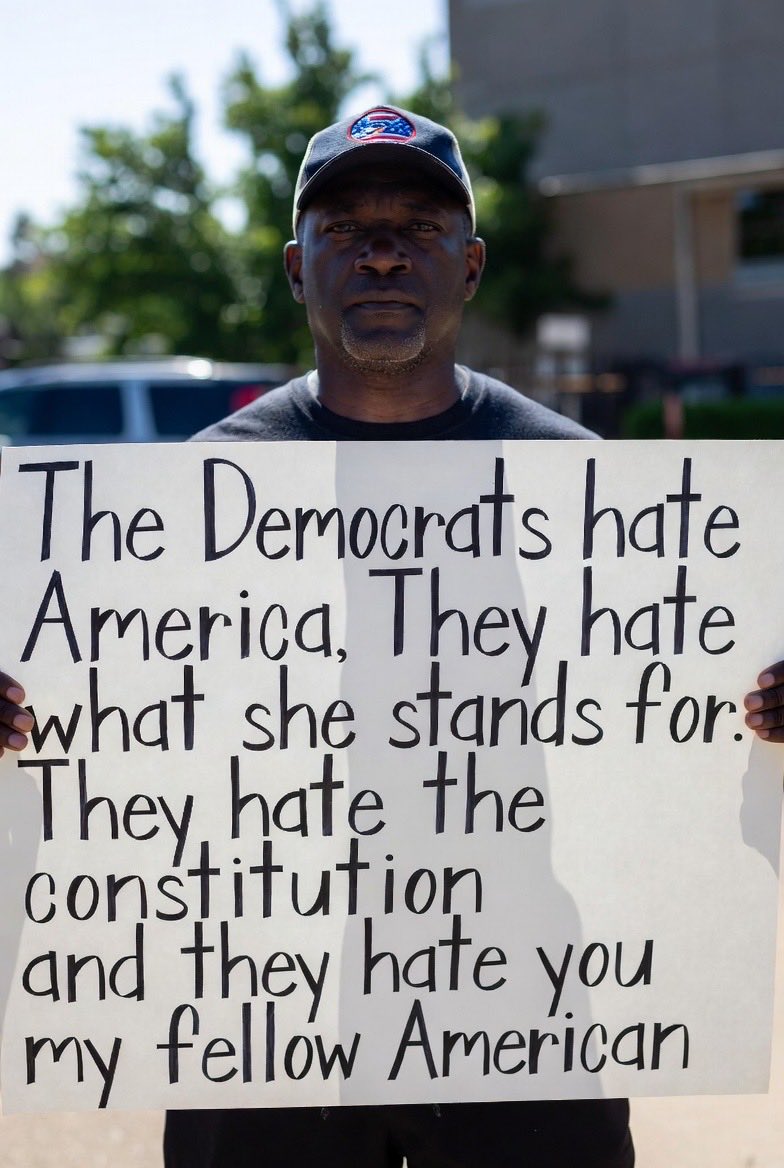 The Democrats hate
America, They hate
what she stands for.
They hate the
constitution
and they hate you
my fellow American